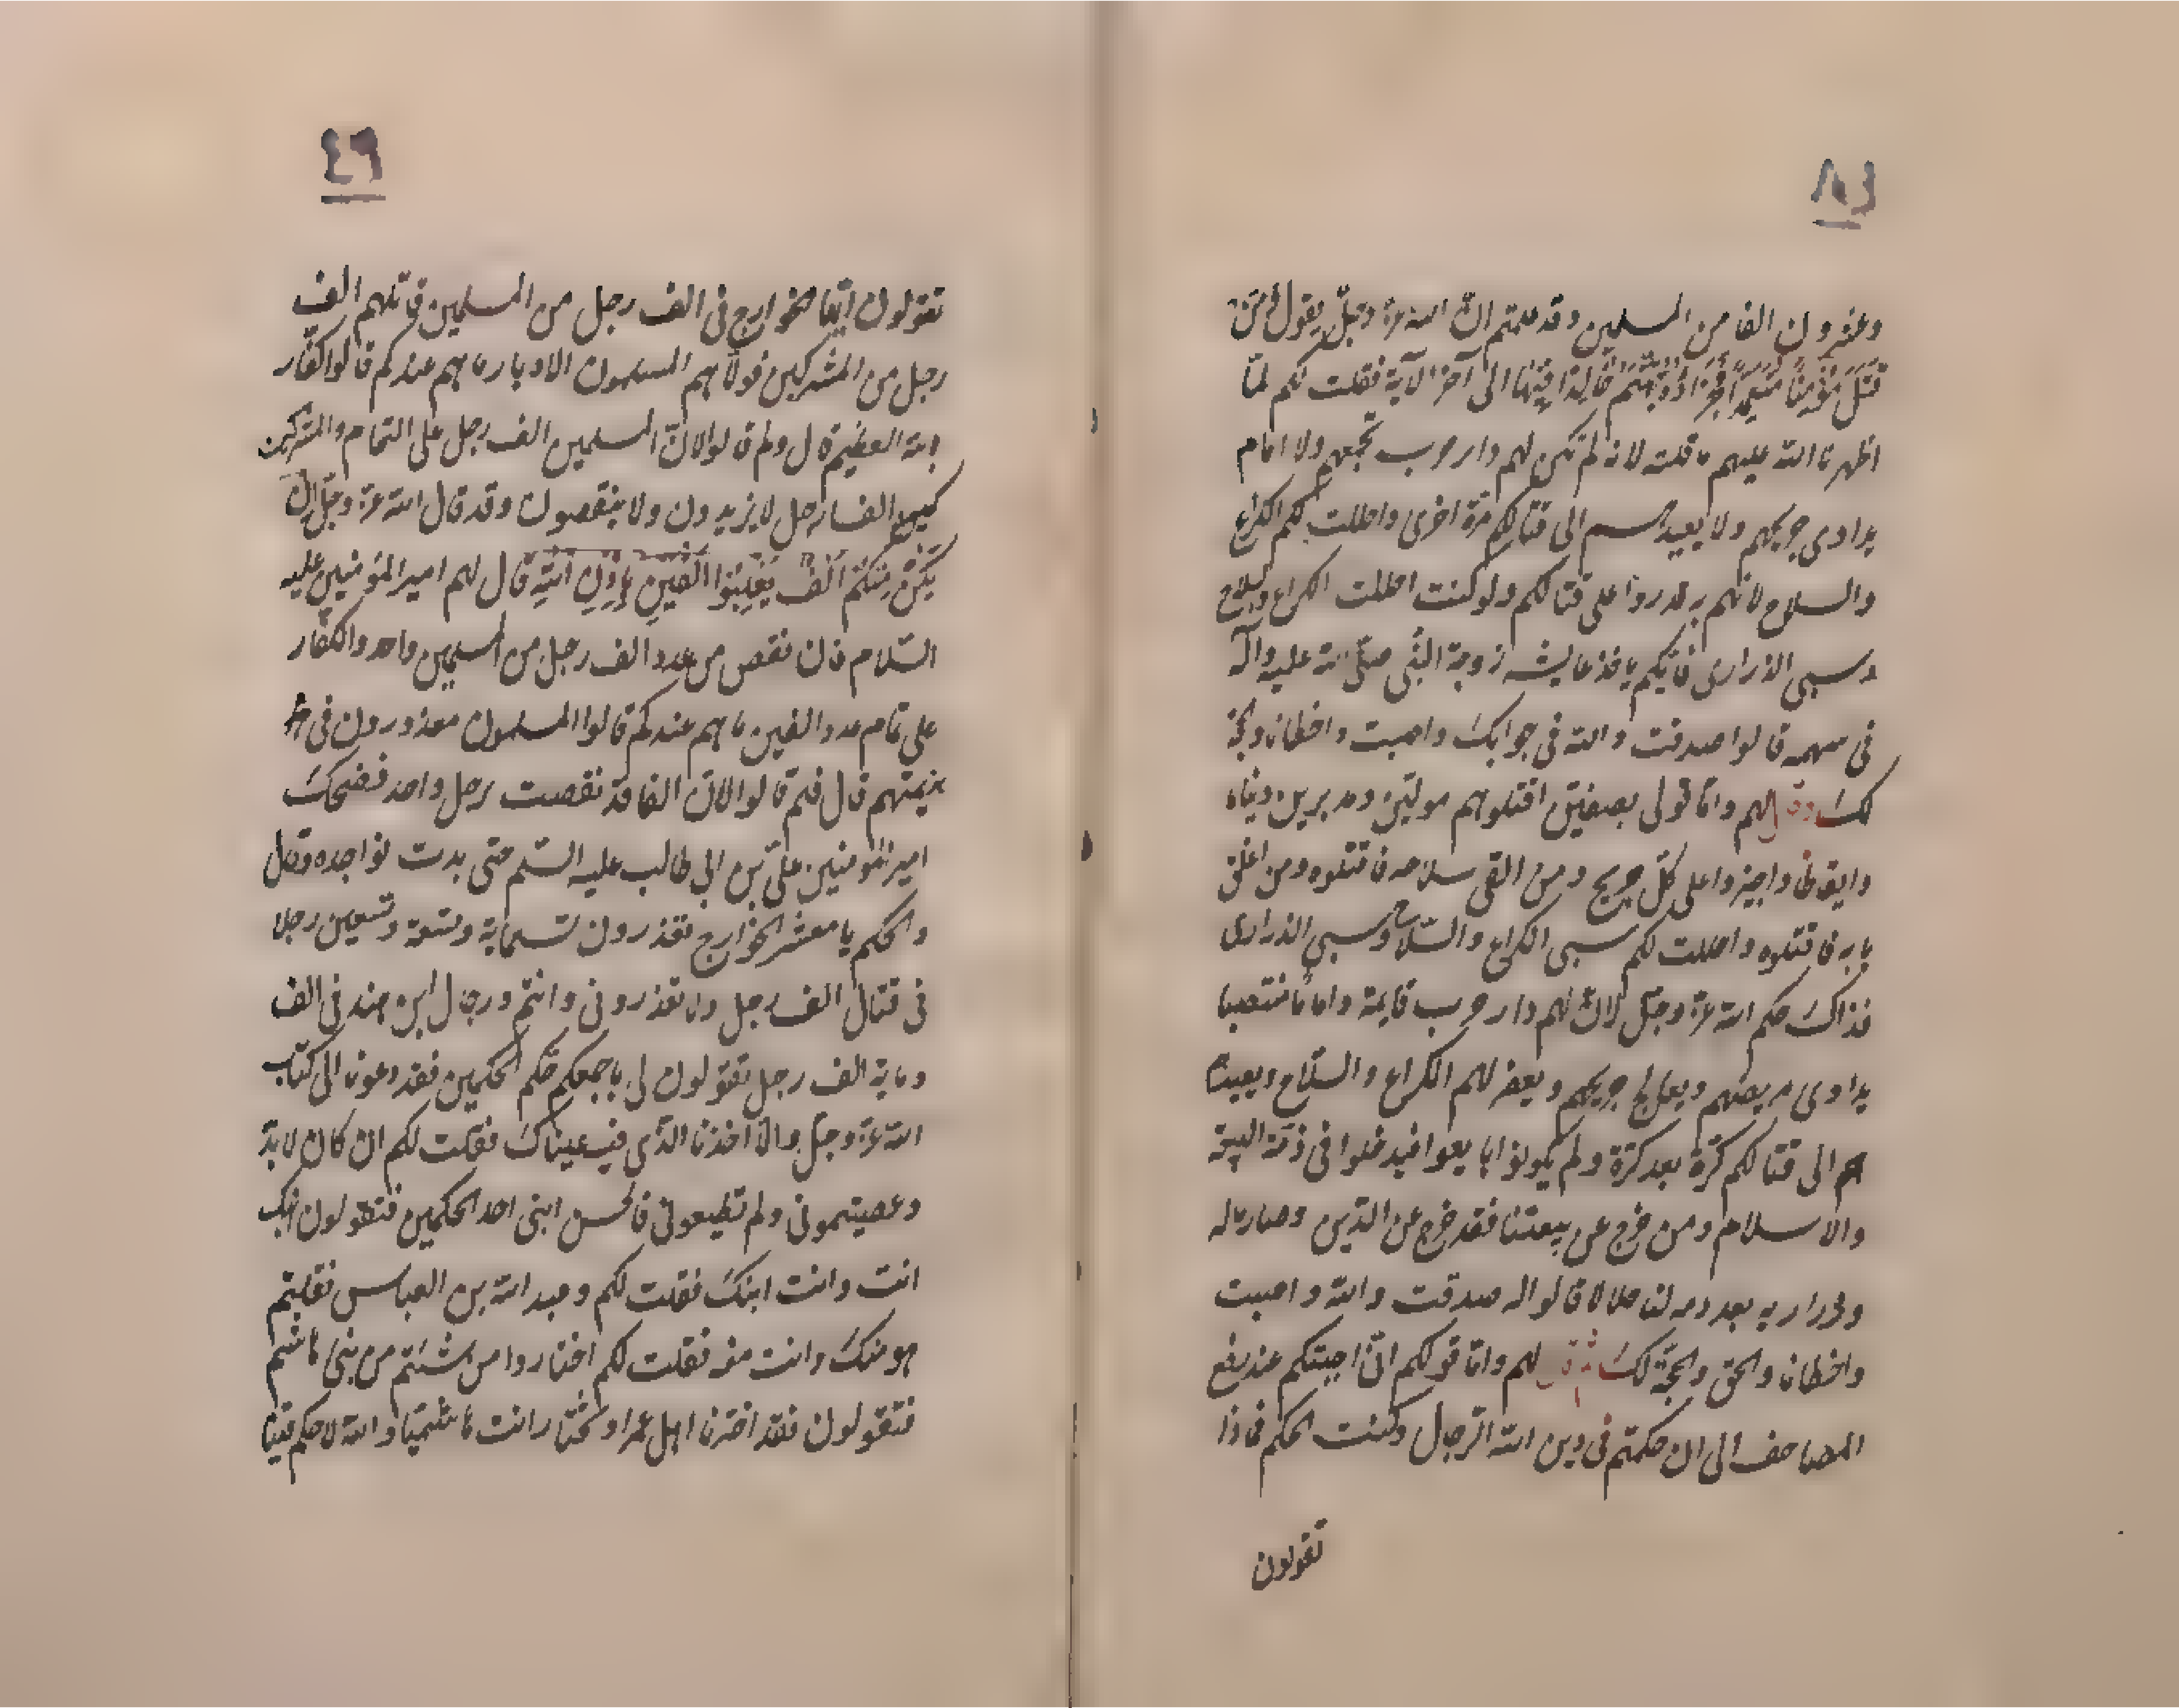 ٤٨
وعشرون الفا من المسلمين وقد علمتم انّ الله عزّ وجلّ يقول وَمَنْ
قَتَلَ مُؤْمِنًا مُتَعَمِّدًا فَجَزَاؤُهُ جَهَنَّمُ خَالِدًا فِيهَا الى آخر الآية فقلت لكم لمّا
اظهرنا الله عليهم ما قلته لانه لم تكن لهم دار حرب تجمعهم ولا امام
يداوى جريحهم ولا يعيدهم الى قتالكم مرّة اخرى واحللت لكم الكراع
والسلاح لانهم قدروا على قتالكم ولو كنت احللت الكراع والسلاح
وسبى الذرارى فايّكم ياخذ عايشه زوجة النبى صلّى الله عليه وآله
فى سهمه قالوا صدقت والله فى جوابك واصبت واخطانا والحجّة
لك وقال لهم وامّا قولى بصفين اقتلوهم مولّين ومدبرين ونياما
وايقاظا واجيزوا على كلّ جريح ومن القى سلاحه فاقتلوه ومن اغلق
بابه فاقتلوه واحللت لكم سبى الكراع والسّلاح وسبى الذرارى
فذاك حكم الله عزّ وجلّ لانّ لهم دار حرب قايمة واماما منتصبا
يداوى مريضهم ويعالج جريحهم ويعفر لهم الكراع والسّلاح ويعيد
هم الى قتالكم كرّة بعد كرّة ولم يكونوا بايعوا فيدخلوا فى ذمّة البيعة
والاسلام ومن خرج عن بيعتنا فقد خرج عن الدّين وصار ماله
وذراريه بعد دمه لنا حلالا قالوا له صدقت والله واصبت
واخطانا والحق والحجّة لك ثم قال لهم وامّا قولكم انّى اجبتكم عند رفع
المصاحف الى ان حكمتم فى دين الله الرّجال وكنت الحكم فماذا
تقولون
٤٩
تقولون ايّها الخوارج فى الف رجل من المسلمين قاتلهم الف
رجل من المشركين فولّاهم المسلمون الادبار ما هم عندكم قالوا كفّار
بالله العظيم قال ولم قالوا لانّ المسلمين الف رجل على التمام والمشركين
كميع الف رجل لا يزيدون ولا ينقصون وقد قال الله عزّ وجلّ إن
يَكُنْ مِنْكُمْ أَلْفٌ يَغْلِبُوا أَلْفَيْنِ بِإِذْنِ اللهِ قال لهم امير المؤمنين عليه
السّلام فان نقص من عدد الف رجل من المسلمين واحد والكفّار
على تمام عدد الفين ما هم عندكم قالوا المسلمون معذورون فى
هزيمتهم قال فلم قالوا لانّ الفا قد نقصت رجل واحد فضحك
امير المؤمنين علىّ بن ابى طالب عليه السّلم حتى بدت نواجده وقال
ويحكم يا معشر الخوارج تعذرون تسعماية وتسعة وتسعين رجلا
فى قتال الف رجل ولا تعذرونى وانتم ورجال ابن هند فى الف
وماية الف رجل تقولون لى باجمعكم حكّم الحكمين فقد دعونا الى كتاب
الله عزّ وجلّ والّا اخذنا الّذى فيه عيناك فقلت لكم ان كان لا بدّ
وعصيتمونى ولم تطيعونى فالحسن ابنى احد الحكمين فتقولون ابنك
انت وانت ابنك فقلت لكم وعبد الله بن العباس فقلتم
هو منك وانت منه فقلت لكم اختاروا من شئتم من بنى هاشم
فتقولون فقد اخترنا اهل عمرا وتختار انت هاشميّا والله لا حكم فينا